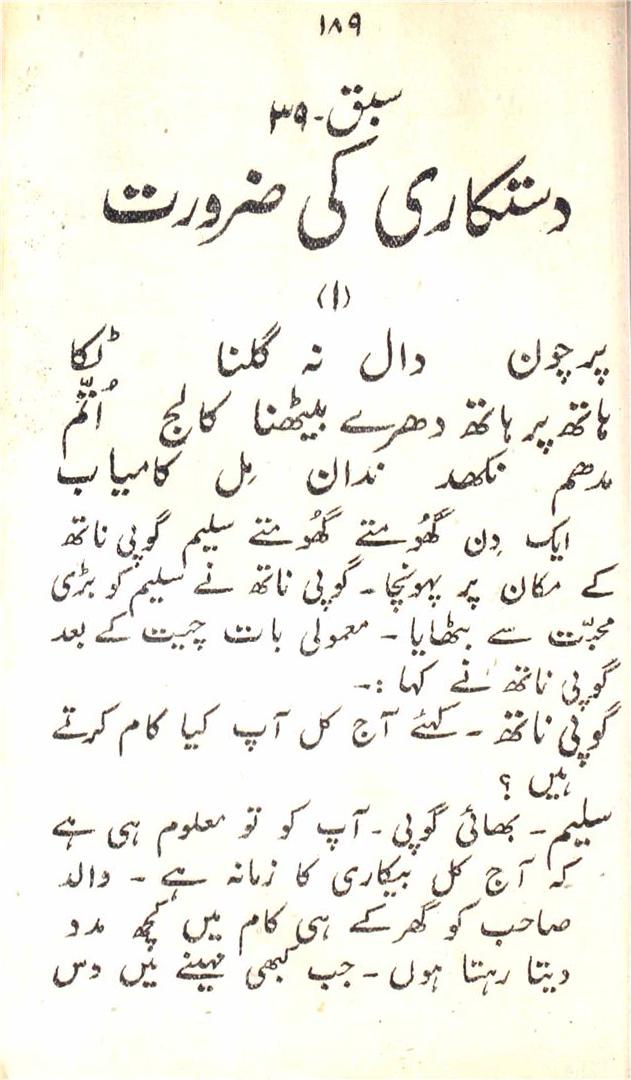 ۱۸۹
سبق - ۳۹
دستکاری کی ضرورت
(۱)
پرچون دال نہ گلنا ٹکا
ہاتھ پر ہاتھ دھرے بیٹھنا کالج اُتّم
مدھم نکھد ندان مِل کامیاب
ایک دِن گھُومتے گھُومتے سلیم گوپی ناتھ
کے مکان پر پہونچا - گوپی ناتھ نے سلیم کو بڑی
محبّت سے بٹھایا - معمولی بات چیت کے بعد
گوپی ناتھ نے کہا :-
گوپی ناتھ - کہئے آج کل آپ کیا کام کرتے
ہیں ؟
سلیم - بھائی گوپی - آپ کو تو معلوم ہی ہے
کہ آج کل بیکاری کا زمانہ ہے - والد
صاحب کو گھر کے ہی کام میں کچھ مدد
دیتا رہتا ہوں - جب کبھی مہینے میں دس